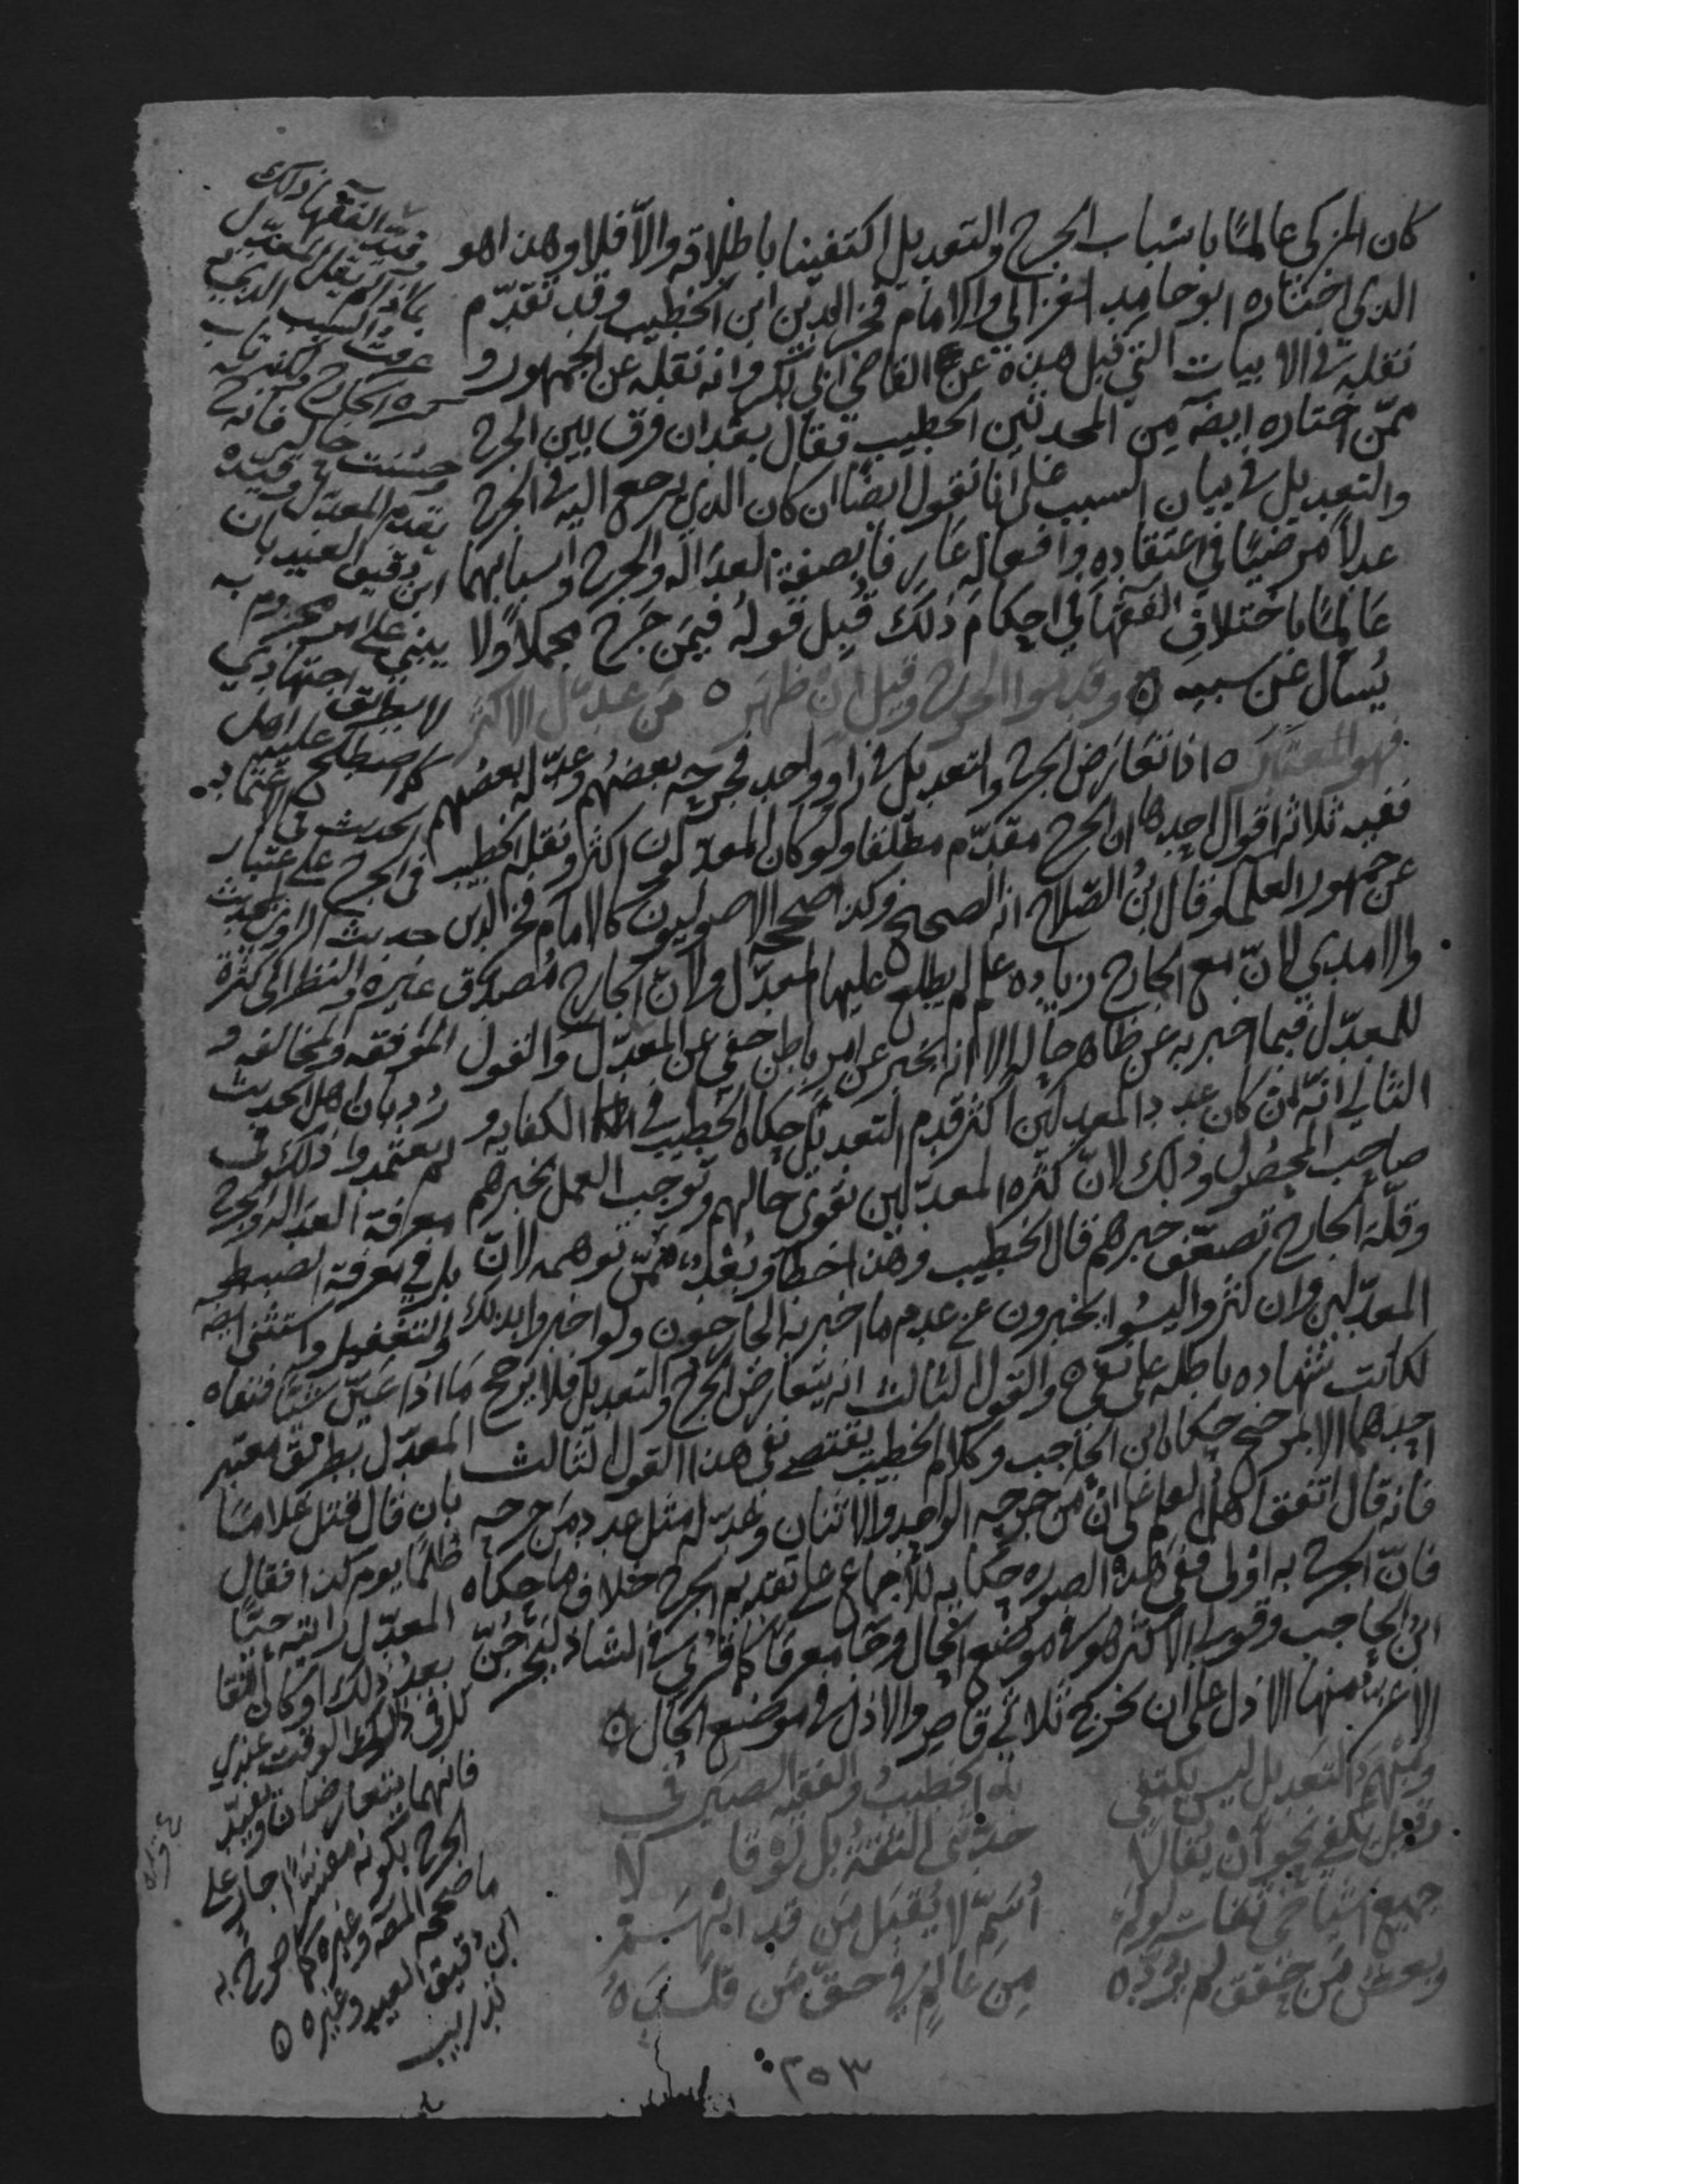 كان المزكى عالمًا باسباب الجرح والتعديل اكتفينا باطلاقه والاّ فلا وهذا هو
الذي اختاره ابو حامد الغزالي والامام فخر الدين ابن الخطيب وقد تقدّم
نقله في الابيات التي قبل هذه عن القاضي ابي بكر وانه نقله عن الجمهور و
ممّن اختاره ايضا من المحدثين الخطيب فقال بعد ان فرق بين الجرح
والتعديل في بيان السبب على انا نقول ايضًا ان كان الذي يرجع اليه في الجرح
عدلاً مرضيًا في اعتقاده وافعاله عارفا بصفة العداله والجرح واسبابهما
عالمًا باختلاف الفقها في احكام ذلك قُبل قوله فيمن جَرح مجملا ولا
يُسأل عن سببه ۞ وقدموا الجرح وقيل ان ظهر ٥ من عدّل الاكثر
فهو المعتبر ٥ اذا تعارض الجرح والتعديل في راو واحد فجرحه بعضهم وعدّله بعضهم
ففيه ثلاثه اقوال احدها ان الجرح مقدّم مطلقا ولو كان المعدّلون اكثر ونقله الخطيب
عن جمهور العلما وقال ابنُ الصّلاح انه الصحيح وكذا صححه الاصوليون كالامام فخر الدين
والامدي لانّ مع الجارح زياده علم لم يطلع عليها المعدّل ولانّ الجارح مُصدق
للمعدّل فيما اخبر به عن ظاهر حاله الا انه يخبر عن امر باطن خفى عن المعدّل والقول
الثاني انّه ان كان عدد المعدلين اكثر قدم التعديل حكاه الخطيب في الكفايه و
صاحب المحصُول وذلك لانّ كثره المعدّلين تقوى حالهم وتوجب العمل بخبرهم
وقلّة الجارح تضعّف خبرهم قال الخطيب وهذا خطأ وبُعْد ممّن توهمه لانّ
المعدّلين وان كثروا ليسُوا يخبرون عن عدم ما اخبر به الجارحون ولو اخبروا بذلك
لكانت شهاده باطله على نفي ٥ والقول الثالث انه يتعارض الجرح والتعديل فلا يرجح
احدهما الا بمرجّح حكاه ابن الحاجب وكلام الخطيب يقتضي نفي هذا القول الثالث
فانه قال اتفق اهلُ العلم على انّ من جرحه الواحد والاثنان وعدّله مثل عدد من جرحه
فانّ الجرح به اَوْلى ففي هذه الصوره حكايه للاجماع على تقديم الجرح خلاف ما حكاه
ابنُ الحاجب وقولي الاكثر هو في موضع الحال وجا معرفا كما قرى في الشاذ ليخرجنّ
الاعز منها الاذل على ان يخرج ثلاثي قاصر والاذل في موضع الحال ۞
ومُبْهمُ التعديل ليس يكتفي به الخطيبُ والفقيه الصَّيْرَفي
وقيل يكفي نحو أن يُقالا حدّثني الثقةُ بل لو قالا
جميع اشياخي ثقات لو لم أُسَمّ لا يُقبَل مَن قد ابْهَم
وبعضُ مَن حَقّق لم يَرُدّه مِن عالِمٍ في حقّ مَن قلّده
٣٥٣
قيّد الفقها ذلك
بما اذا لم يقل المعدّل
عرفت السبب الذي
ذكره الجارح ولكنه تاب
وحسُنت حاله فانه ح
يقدم المعدّل وقيّده
ابن دقيق العيد بان
يبنى على امر مجزوم به
لا بطريق اجتهادي
كما اصطلح عليه اهل
الحديث في الاعتماد
في الجرح على اعتبار
حديث الراوي بحديث
غيره والنظر الى كثرة
الموافقه والمخالفه و
رُد بان اهل الحديث
لم يعتمدوا ذلك في
معرفة العداله والجرح
بل في معرفة الضبط
والتغفيل واستثنى ايضا
ما اذا عيّن سببًا فنفاه
المعدّل بطريق معتبر
بان قال قتل غلامًا
ظلمًا يوم كذا فقال
المعدّل رايته حيًّا
بعد ذلك او كان القتا
تل في ذلك الوقت عندي
فانهما يتعارضان وتقييد
الجرح بكونه مفسّرًا جارٍ على
ما صححه المصنف وغيره كما صرح به
ابن دقيق العيد وغيره ۞
تدريب